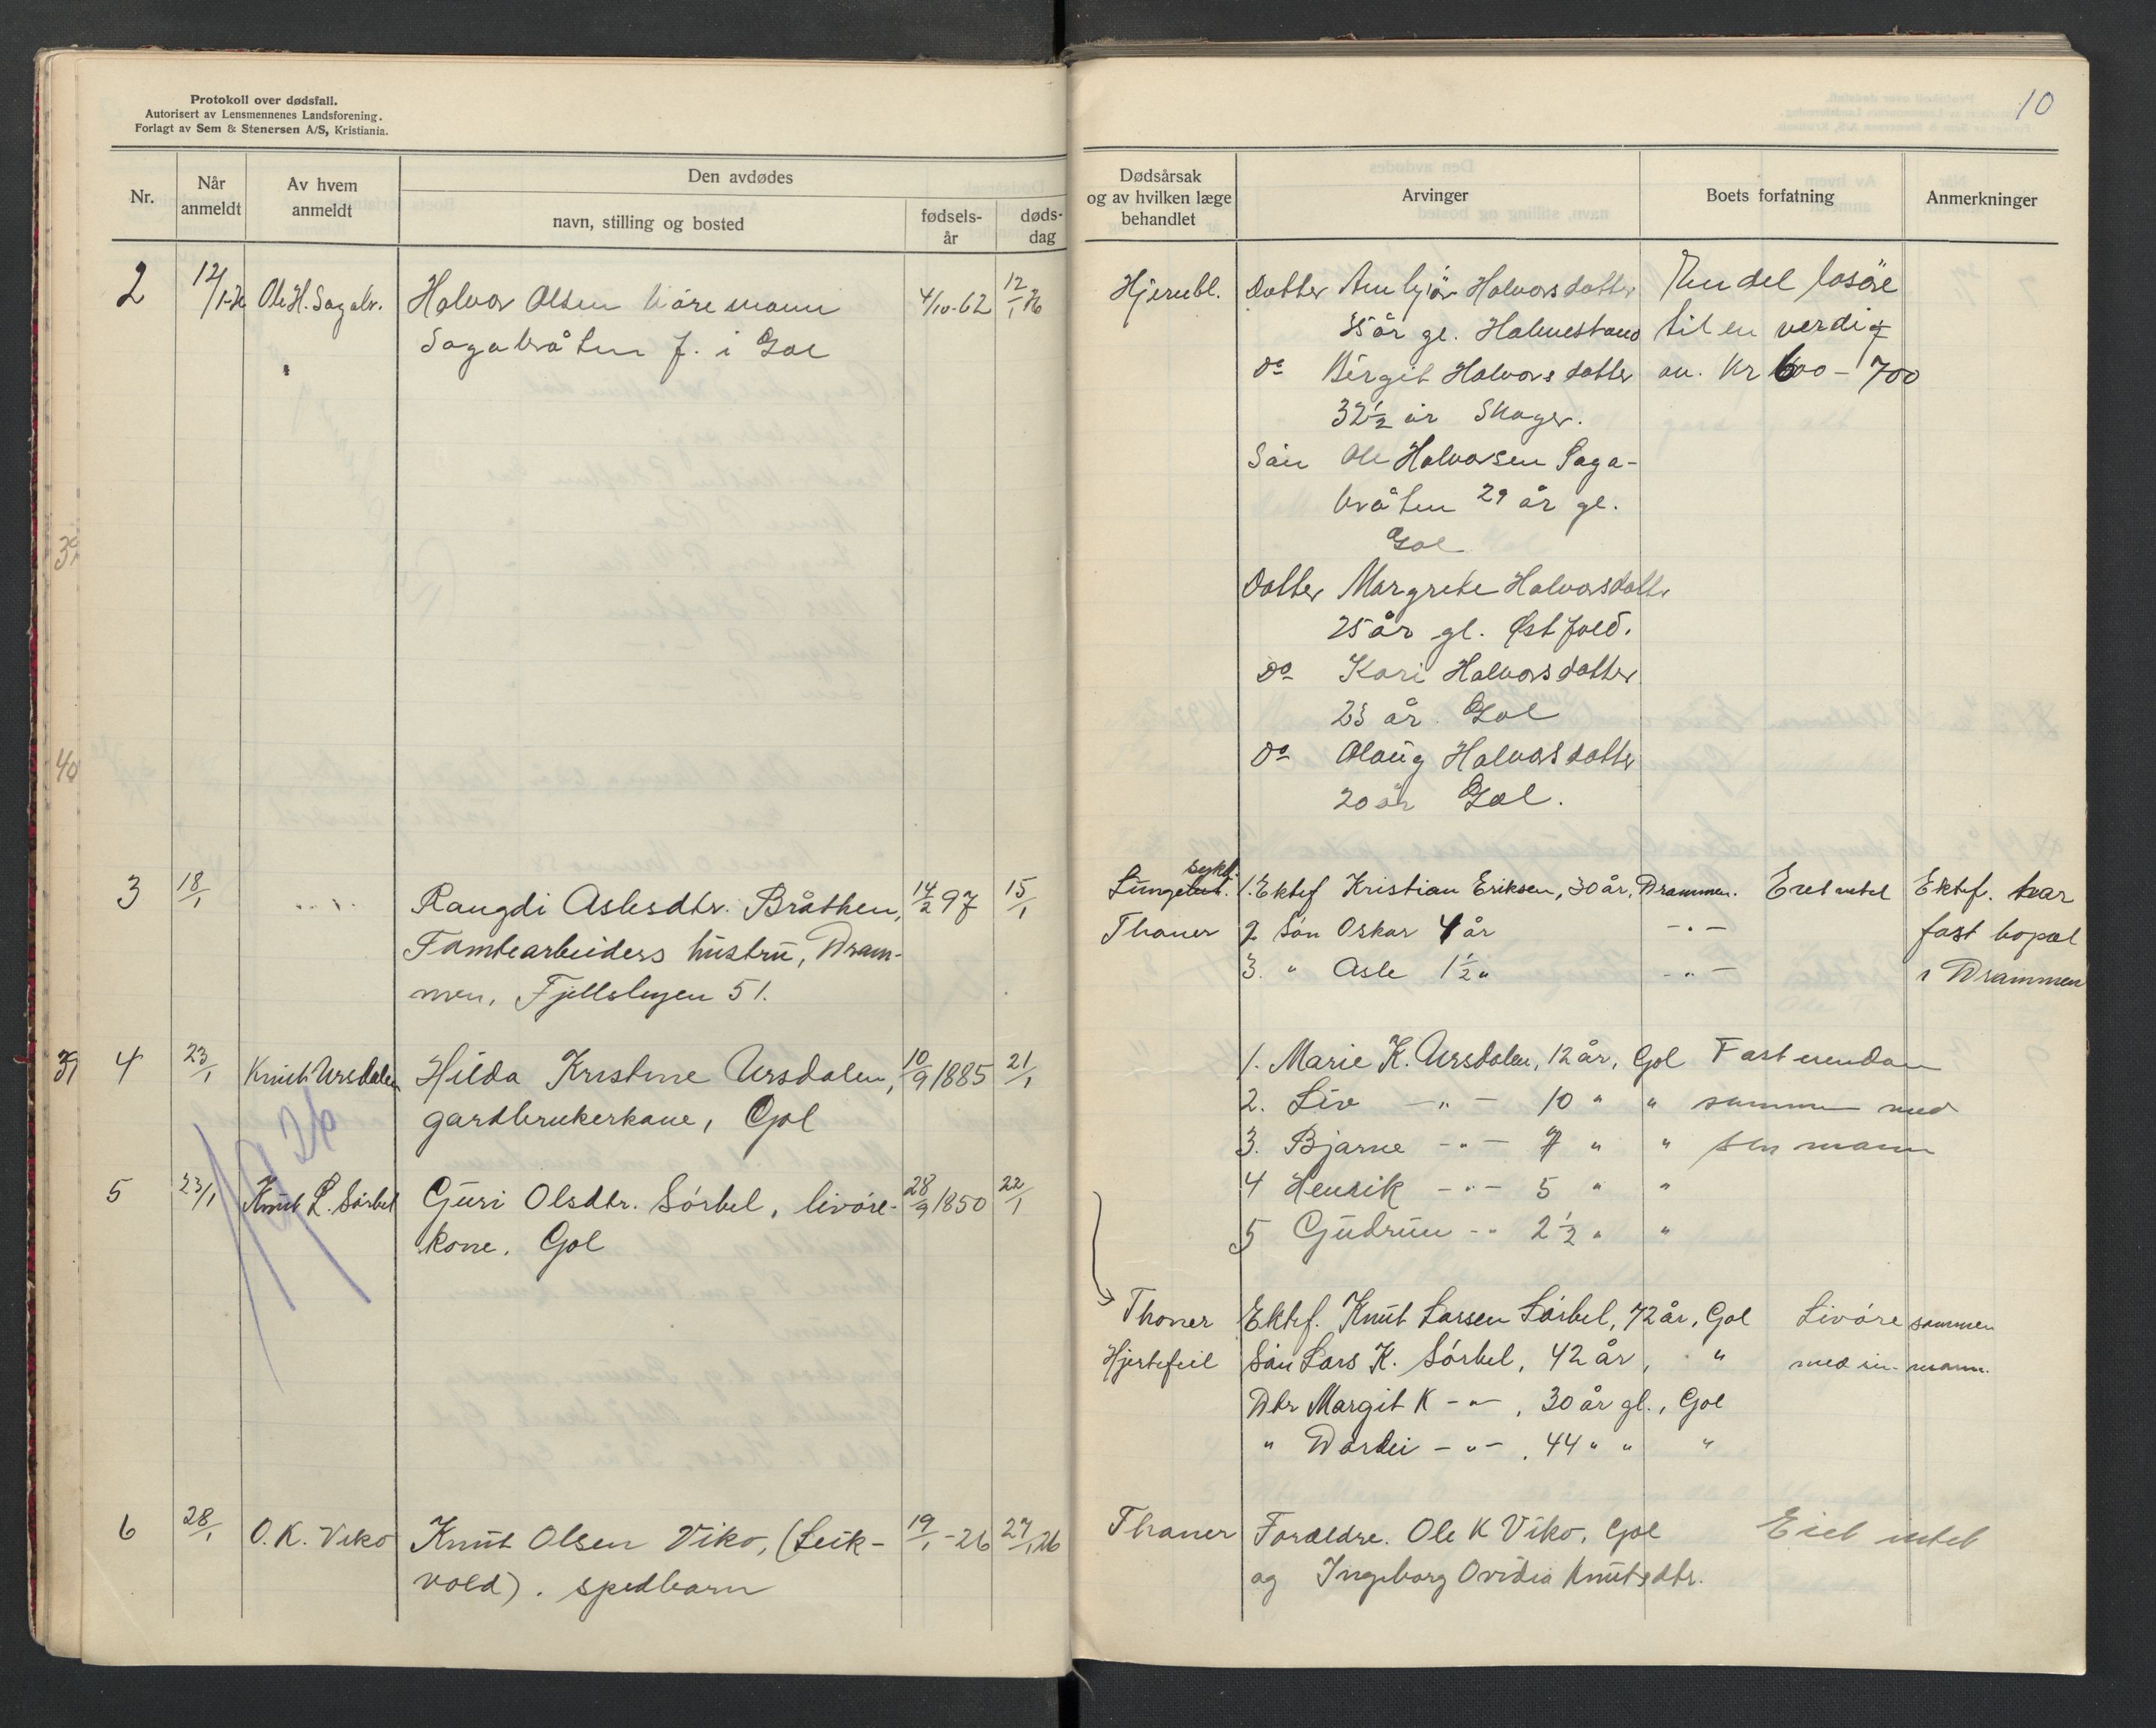 Protokoll over dødsfall.
Autorisert av Lensmennenes Landsforening.
Forlagt av Sem & Stenersen A/S, Kristiania.
Nr.
Når anmeldt
Av hvem anmeldt
Den avdødes
navn, stilling og bosted
fødsels-år
døds-dag
2 12/1-26 Ole H. Sagabr. Halvor Olsen livøremann 4/10-62 12/1 26
Sagabråten f. i Gol
3 18/1 Rangdi Aslesdtr. Bråthen, 14/2 97 15/1
Tomtearbeiders hustru, Dram-
men, Fjellslugen 51.
4 23/1 Knut Ursdalen Hilda Kristine Ursdalen, 10/9 1885 21/1
gardbrukerkone, Gol
1926
5 23/1 Knut L. Sørbel Guri Olsdtr. Sørbel, livøre- 28/9 1850 22/1
kone. Gol
6 28/1 O. K. Viko Knut Olsen Viko, (Leik- 19/1-26 27/1 26
vold). spedbarn
10
Dødsårsak
og av hvilken læge
behandlet
Arvinger
Boets forfatning
Anmerkninger
Hjernebl. Datter Anbjør Halvorsdatter En del løsøre
35 år gl. Holmestrand til en verdi af
Do Birgit Halvorsdatter an. Kr 600 - 700
32½ år Skoger.
Søn Ole Halvorsen Saga-
bråten 29 år gl.
Gol
Datter Margrete Halvorsdatter
25 år gl. Østfold.
Do Kari Halvorsdatter
23 år. Gol
Do Olaug Halvorsdatter
20 år Gol.
sykd.
Lungebet. 1. Ektef Kristian Eriksen, 30 år, Drammen. Eiet intet Ektef. har
Thaner 2 Søn Oskar 4 år -"- fast bopæl
3. " Asle 1½ " -"- i Drammen
1. Marie K. Ursdalen, 12 år, Gol Fast eiendom
2. Liv -"- 10 " " sammen med
3. Bjarne -"- 7 " " sin mann
4 Henrik -"- 5 " "
5 Gudrun -"- 2½ " "
Thoner Ektef. Knut Larsen Sørbel, 72 år, Gol Livøre sammen
Hjertefeil Søn Lars K. Sørbel, 42 år, " med sin mann.
Dtr Margit K -"-, 30 år gl., Gol
" Dordei -"-, 44 " " "
Thaner Forældre. Ole K Viko, Gol Eiet intet
og Ingeborg Ovidia Knutsdtr.